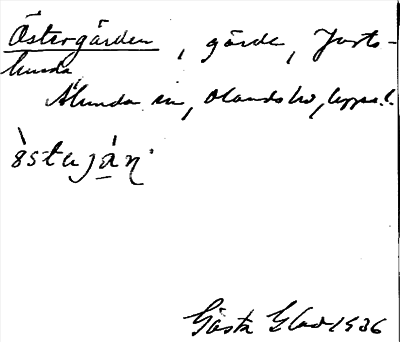 Östergården, gärde, Justs-
hunda,
Ålunda sn, Olands hd, Upps. l.
östaján
Gösta Glad 1936